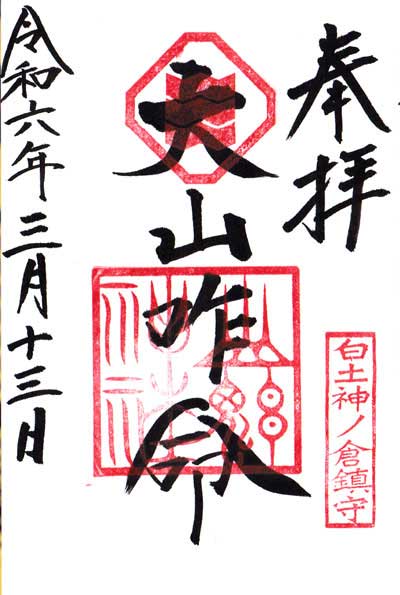 奉拝
大山咋命
令和六年三月十三日
白土神ノ倉鎮守